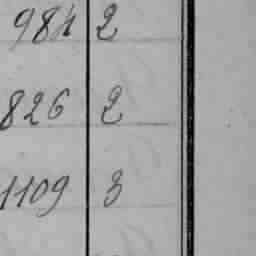 984 2
826 2
1109 3